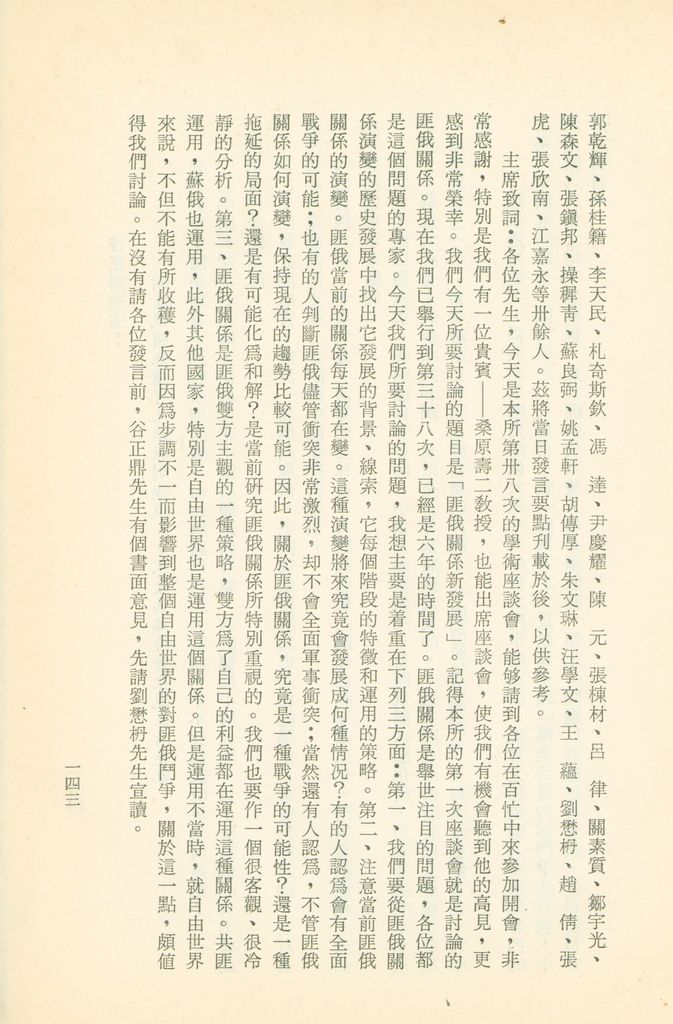 郭乾輝、孫桂籍、李天民、札奇斯欽、馮　達、尹慶耀、陳　元、張棟材、呂　律、關素質、鄒宇光、
陳森文、張鎮邦、操穉青、蘇良弼、姚孟軒、胡傳厚、朱文琳、汪學文、王　蘊、劉懋枬、趙　倩、張
虎、張欣南、江嘉永等卅餘人。茲將當日發言要點刋載於後，以供參考。
主席致詞：各位先生，今天是本所第卅八次的學術座談會，能夠請到各位在百忙中來參加開會，非
常感謝，特別是我們有一位貴賓——桑原壽二敎授，也能出席座談會，使我們有機會聽到他的高見，更
感到非常榮幸。我們今天所要討論的題目是「匪俄關係新發展」。記得本所的第一次座談會就是討論的
匪俄關係。現在我們已舉行到第三十八次，已經是六年的時間了。匪俄關係是舉世注目的問題，各位都
是這個問題的專家。今天我們所要討論的問題，我想主要是着重在下列三方面：第一、我們要從匪俄關
係演變的歷史發展中找出它發展的背景、線索，它每個階段的特徵和運用的策略。第二、注意當前匪俄
關係的演變。匪俄當前的關係每天都在變。這種演變將來究竟會發展成何種情況？有的人認爲會有全面
戰爭的可能；也有的人判斷匪俄儘管衝突非常激烈，却不會全面軍事衝突；當然還有人認爲，不管匪俄
關係如何演變，保持現在的趨勢比較可能。因此，關於匪俄關係，究竟是一種戰爭的可能性？還是一種
拖延的局面？還是有可能化爲和解？是當前硏究匪俄關係所特別重視的。我們也要作一個很客觀、很冷
靜的分析。第三、匪俄關係是匪俄雙方主觀的一種策略，雙方爲了自己的利益都在運用這種關係。共匪
運用，蘇俄也運用，此外其他國家，特別是自由世界也是運用這個關係。但是運用不當時，就自由世界
來說，不但不能有所收穫，反而因爲步調不一而影響到整個自由世界的對匪俄鬥爭，關於這一點，頗値
得我們討論。在沒有請各位發言前，谷正鼎先生有個書面意見，先請劉懋枬先生宣讀。
一四三